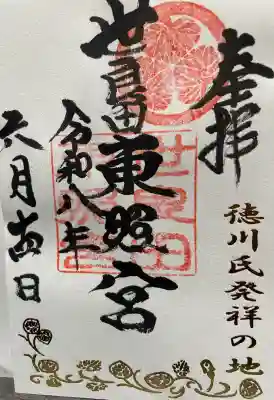 奉拝
徳川氏発祥の地
世良田東照宮
令和八年
六月吉日